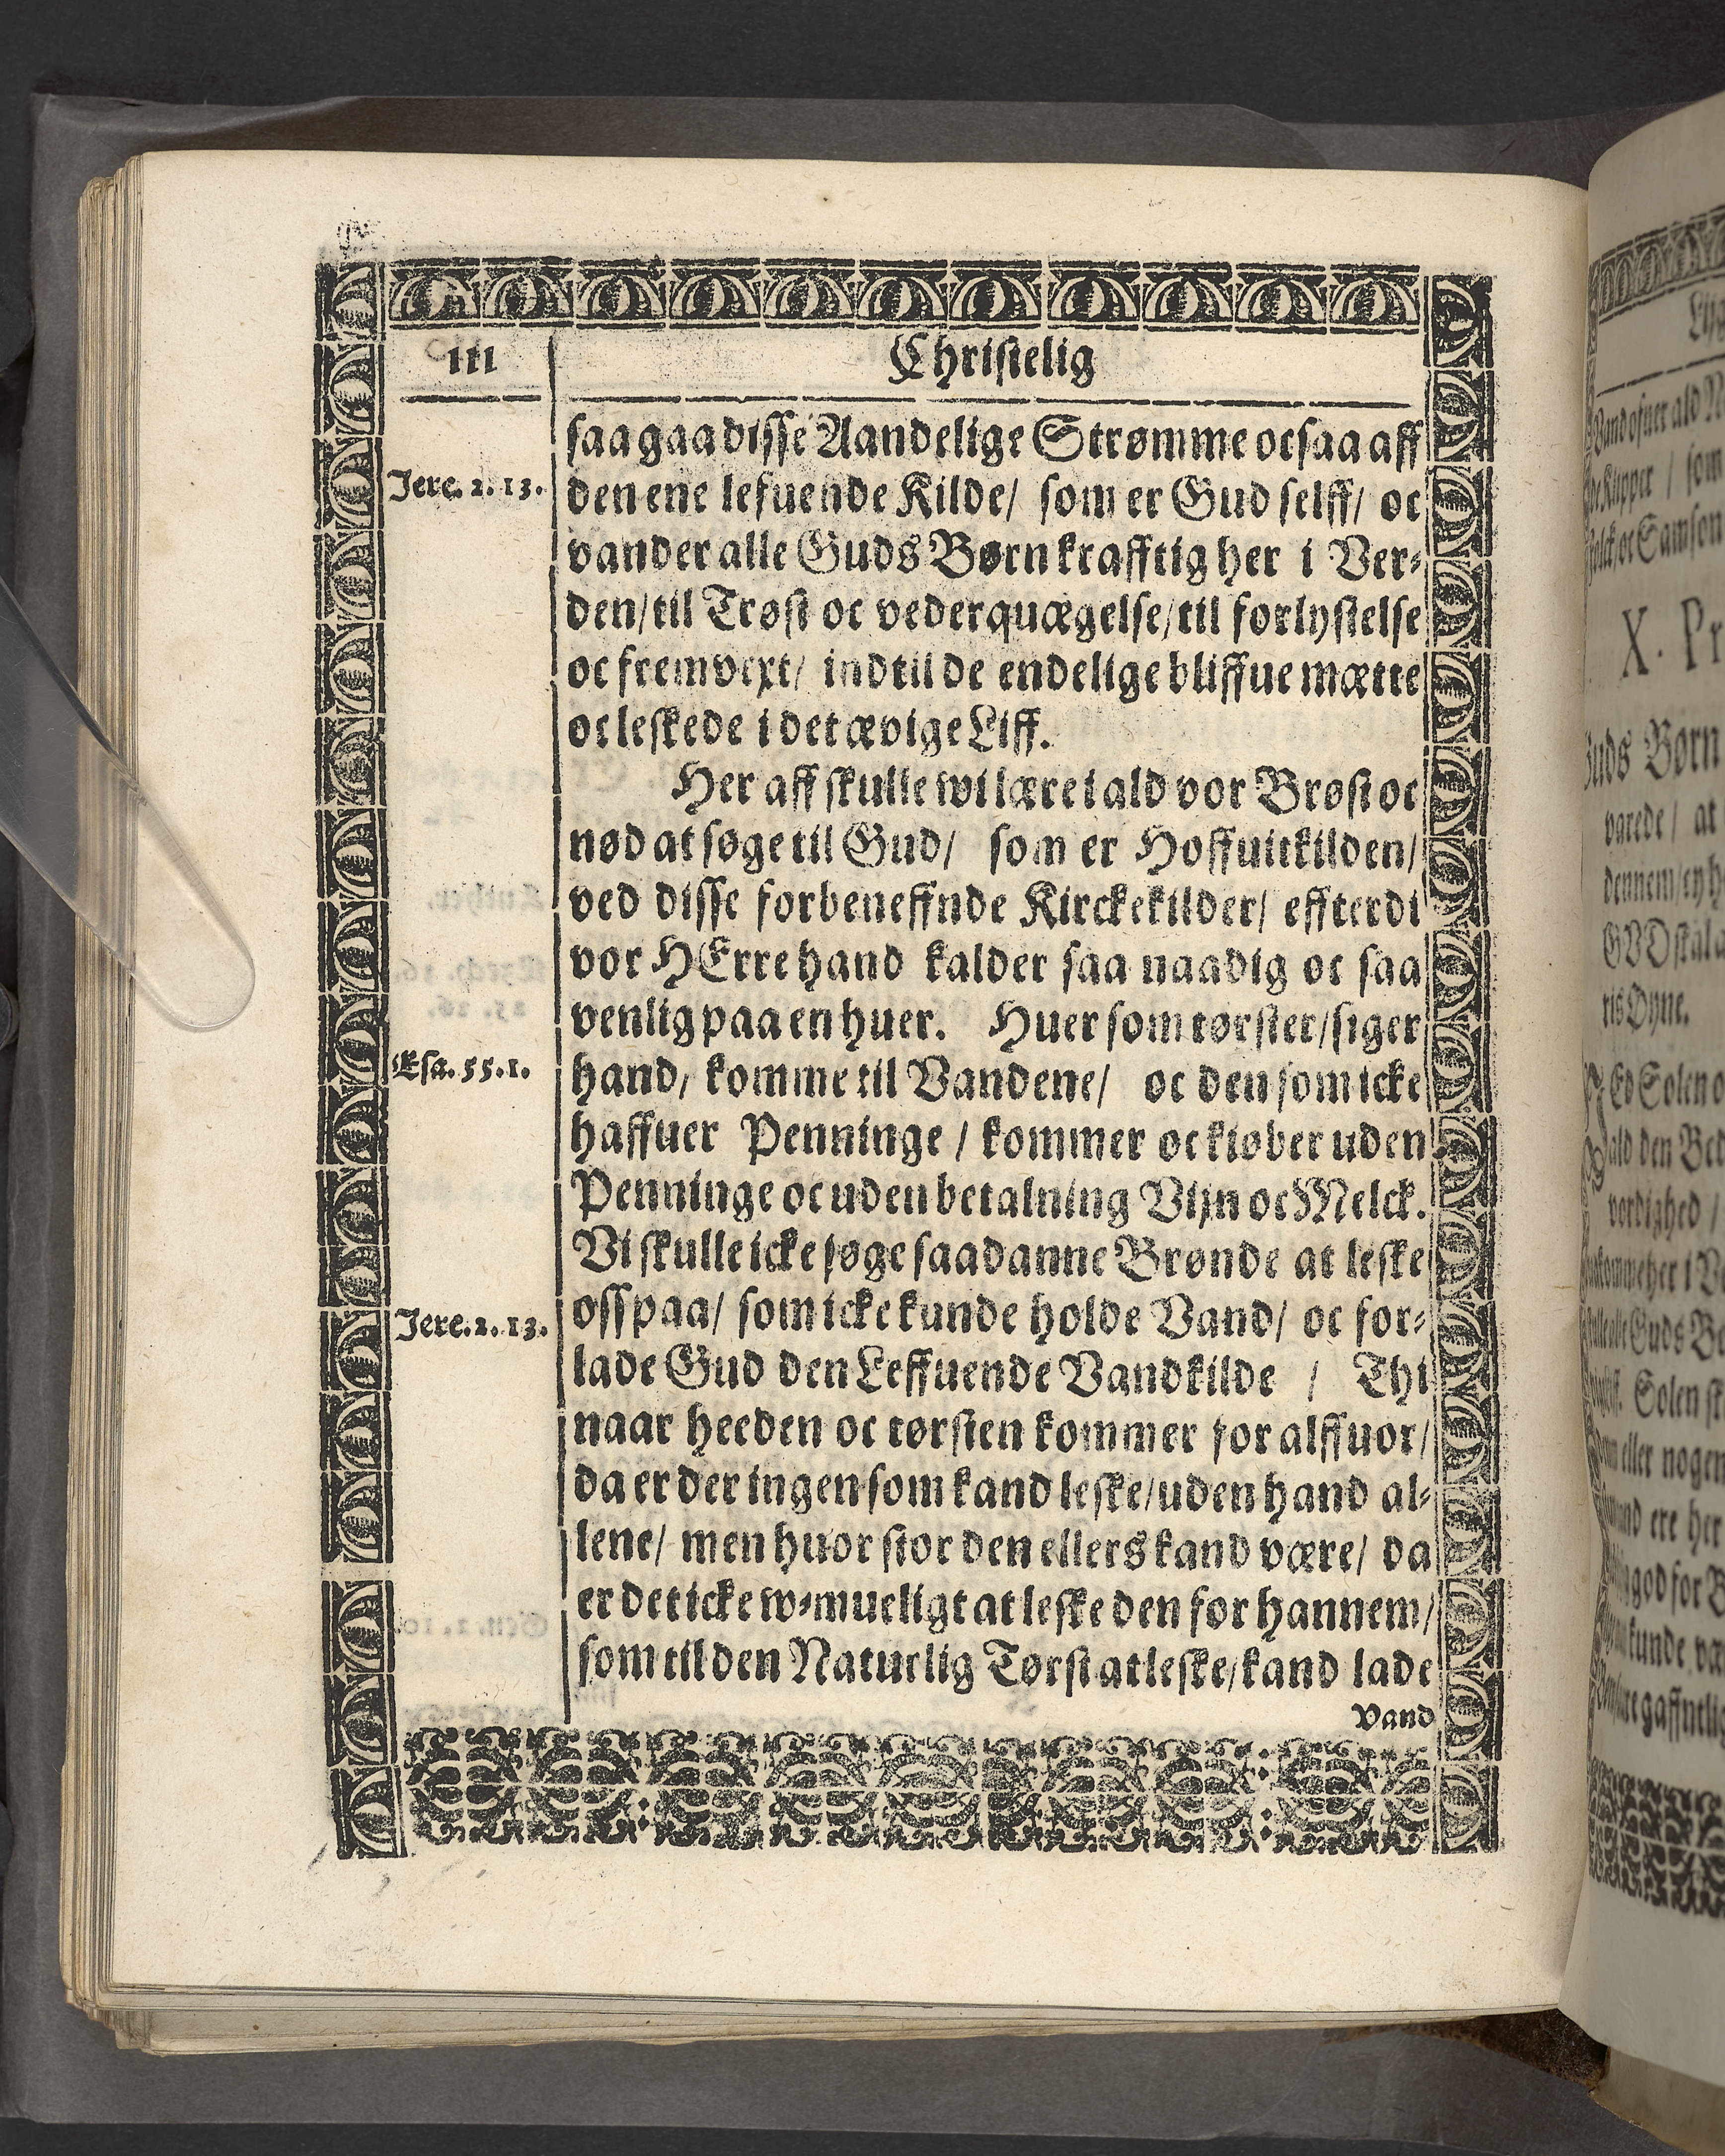 III
Christelig
saa gaa disse Aandelige Strømme ocsaa aff
Jere. 2. 13.
den ene lefuende Kilde/ som er Gud selff/ oc
vander alle Guds Børn krafftig her i Ver-
den/ til Trøst oc vederquægelse/ til forlystelse
oc fremvext/ indtil de endelige bliffue mætte
oc leskede i det ævige Liff.
Her aff skulle wi lære i ald vor Brøst oc
nød at søge til Gud/ som er Hoffuitkilden/
ved disse forbeneffnde Kirckekilder/ effterdi
vor HErre hand kalder saa naadig oc saa
venlig paa en huer. Huer som tørster/ siger
Esa. 55. 1.
hand/ komme til Vandene/ oc den som icke
haffuer Penninge / kommer oc kiøber uden
Penninge oc uden betalning Vijn oc Melck.
Vi skulle icke søge saadanne Brønde at leske
Jere. 2. 13.
oss paa/ som icke kunde holde Vand/ oc for-
lade Gud den Leffuende Vandkilde / Thi
naar heeden oc tørsten kommer for alffuor/
da er der ingen som kand leske/ uden hand al-
lene/ men huor stor den ellers kand være/ da
er det icke w-mueligt at leske den for hannem/
som til den Naturlig Tørst at leske/ kand lade
Vand
X. Pr
Guds Børn
varede / at
ris Øyne.
ald den Bed
Solen sk